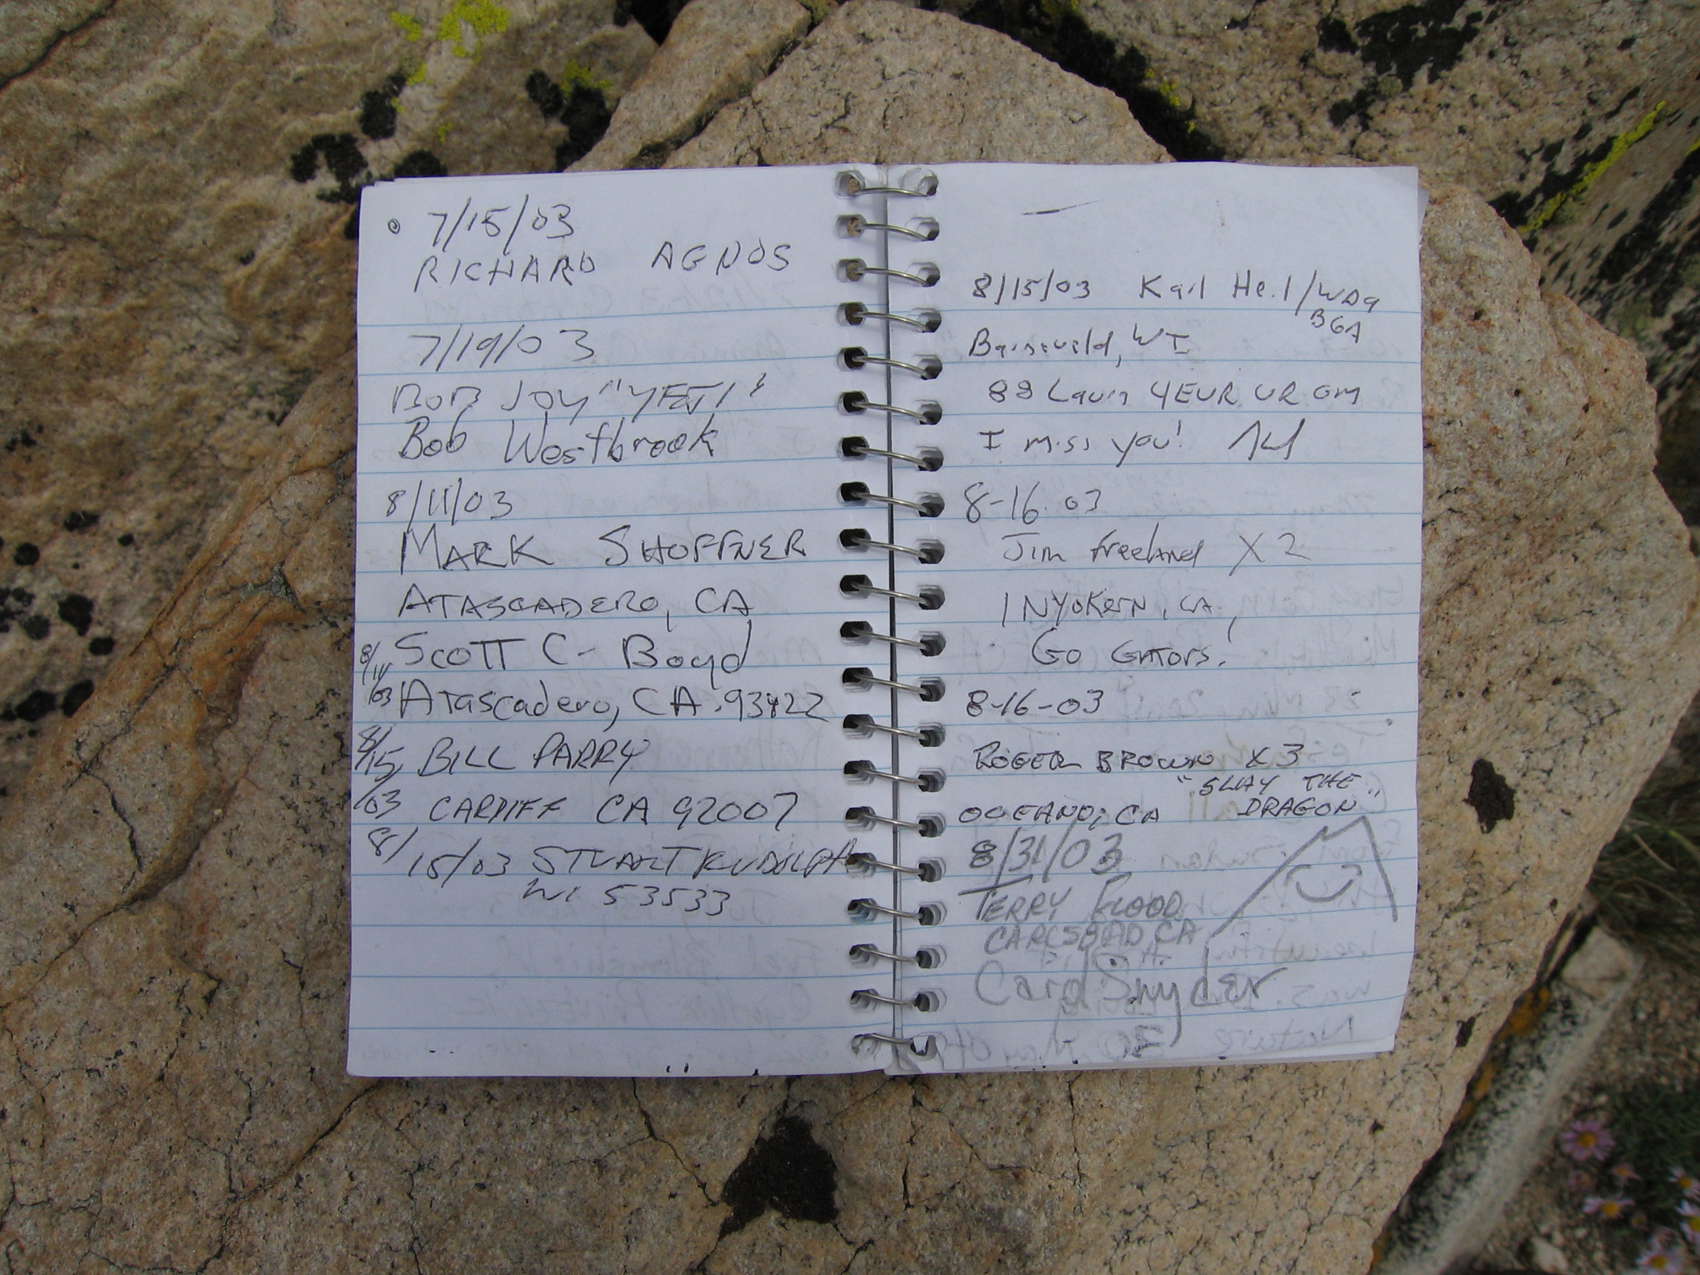 7/15/03
RICHARD AGNOS
7/19/03
BOB JOY "YETI"
Bob Westbrook
8/11/03
MARK SHOFFNER
ATASCADERO, CA
8/11/03 SCOTT C- Boyd
Atascadero, CA. 93422
8/15/03 BILL PARRY
CARDIFF CA 92007
8/15/03 STUART
WI 53533
8/15/03 Karl
, WI
88
I miss you!
8-16-03
Jim Freeland X2
INYOKERN, CA.
Go GATORS.
8-16-03
ROGER BROWN X3
"SLAY THE
OCEANO, CA DRAGON"
8/31/03
TERRY FLOOD
CARLSBAD CA
Carol Snyder